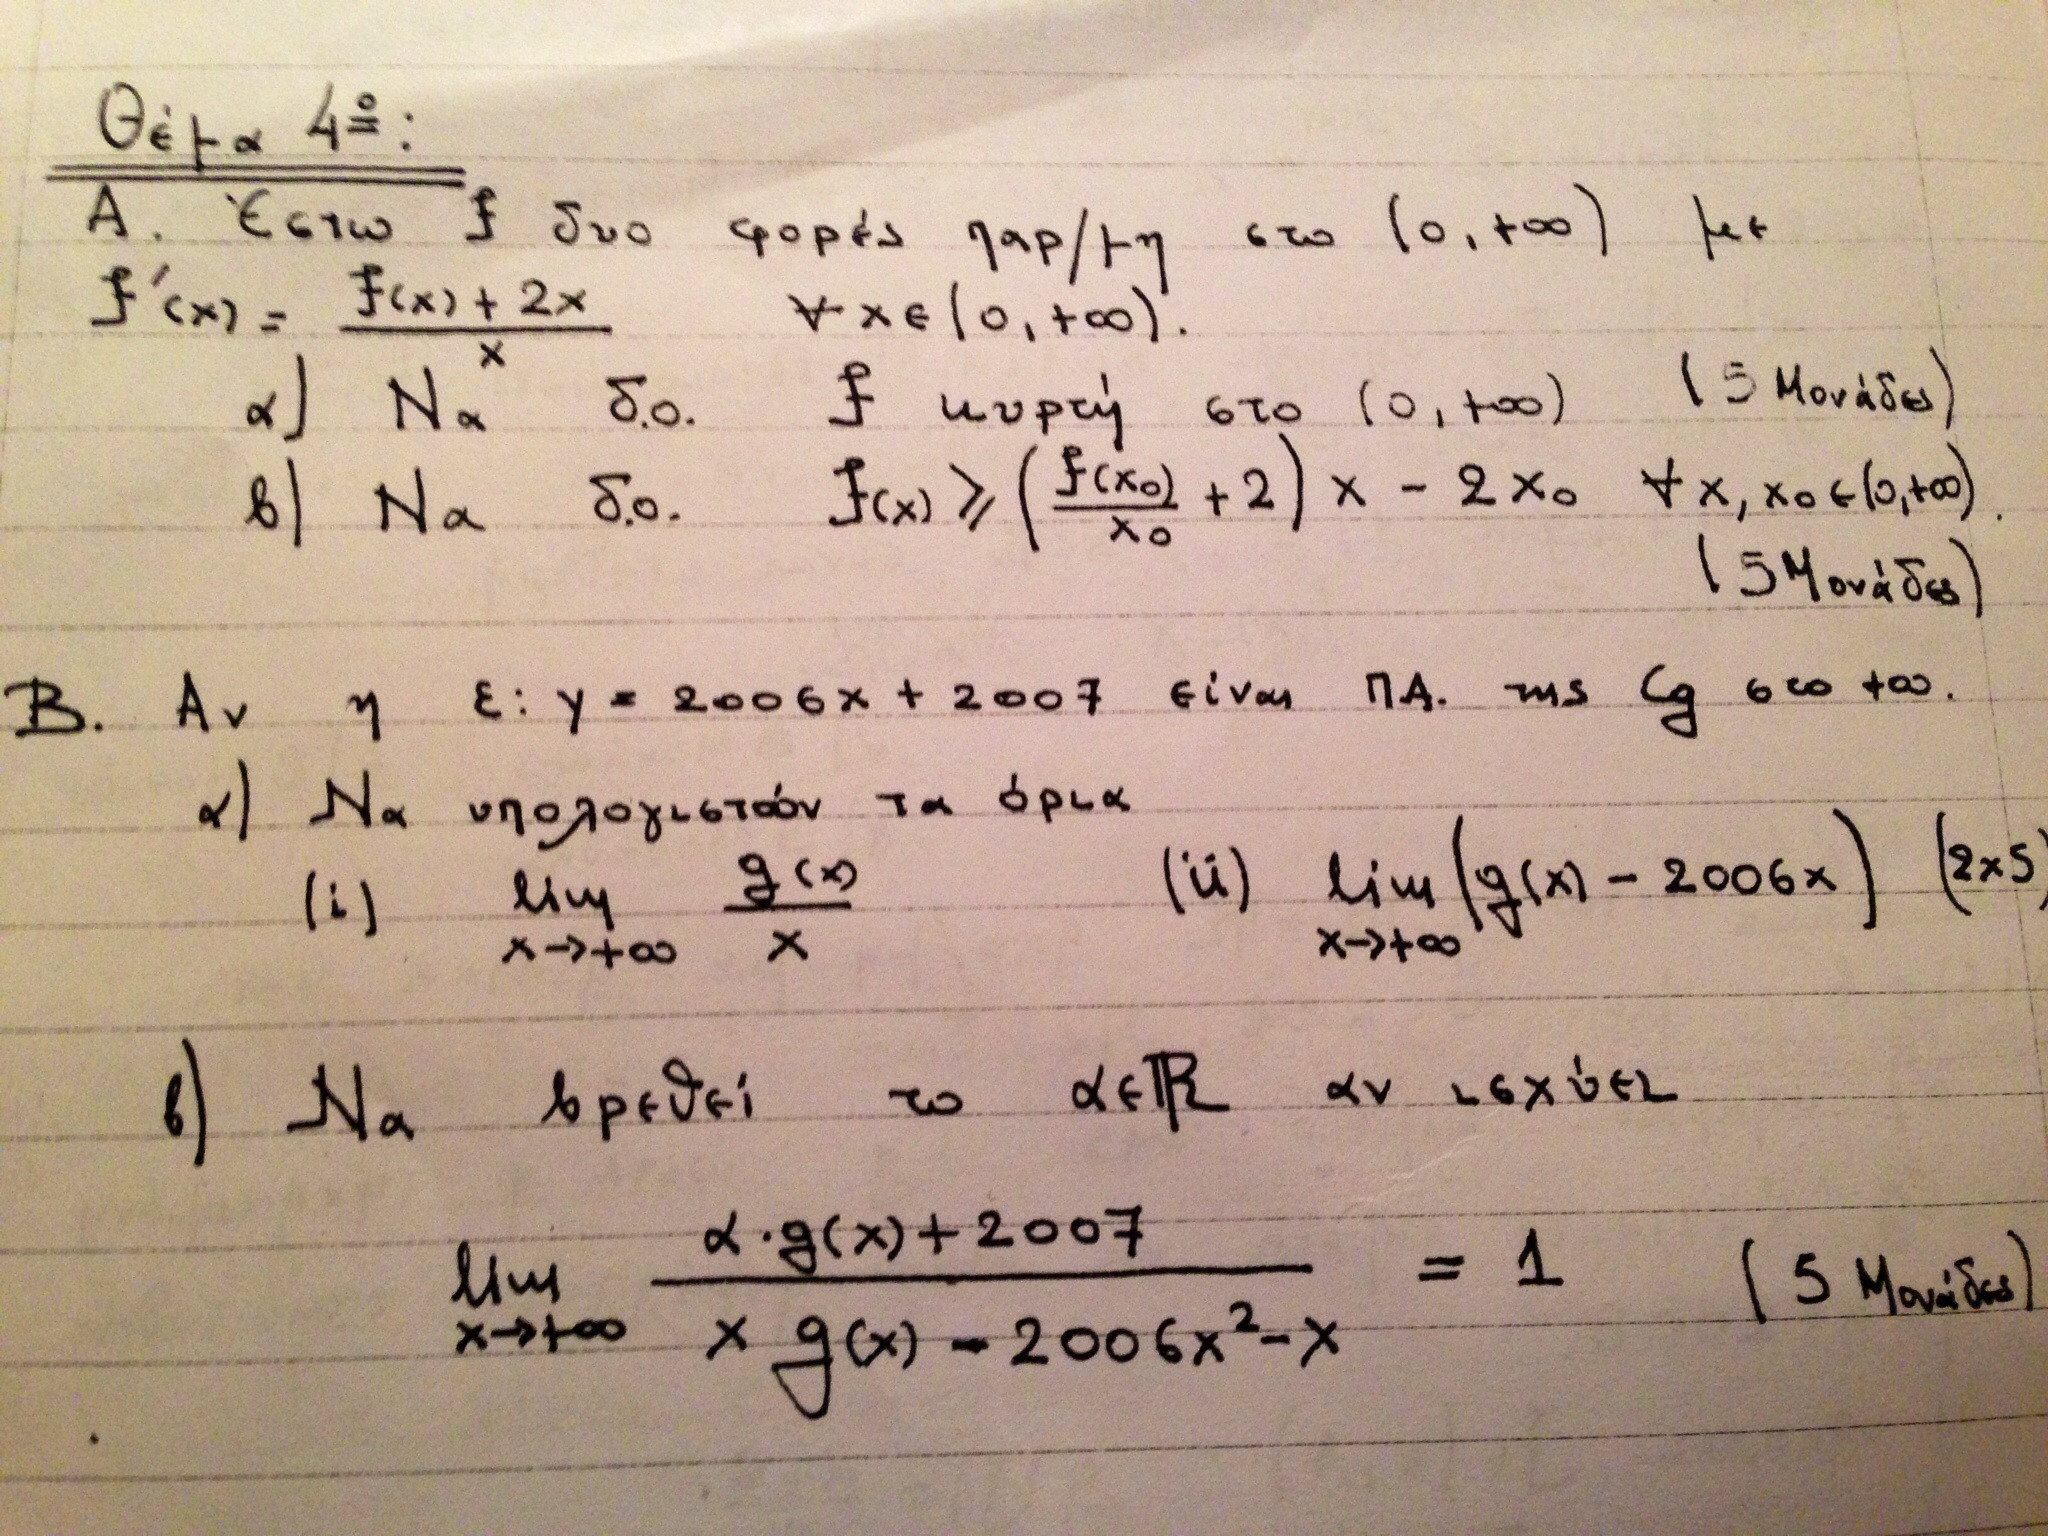 Θέμα 4º:
Α. Έστω f δυο φορές παρ/μη στο (0,+∞) με
f'(x) = \frac{f(x)+2x}{x} ∀x∈(0,+∞).
α) Να δ.ο. f κυρτή στο (0,+∞) (5 Μονάδες)
β) Να δ.ο. f(x) ≥ (\frac{f(x₀)}{x₀} + 2) x - 2x₀ ∀x, x₀∈(0,+∞).
(5 Μονάδες)
Β. Αν η ε: y = 2006x + 2007 είναι ΠΑ. της Cg στο +∞.
α) Να υπολογιστούν τα όρια
(i) \lim_{x→+∞} \frac{g(x)}{x} (ii) \lim_{x→+∞} (g(x) - 2006x) (2x5)
β) Να βρεθεί το α∈ℝ αν ισχύει
\lim_{x→+∞} \frac{α·g(x)+2007}{x g(x) - 2006x² - x} = 1 (5 Μονάδες)